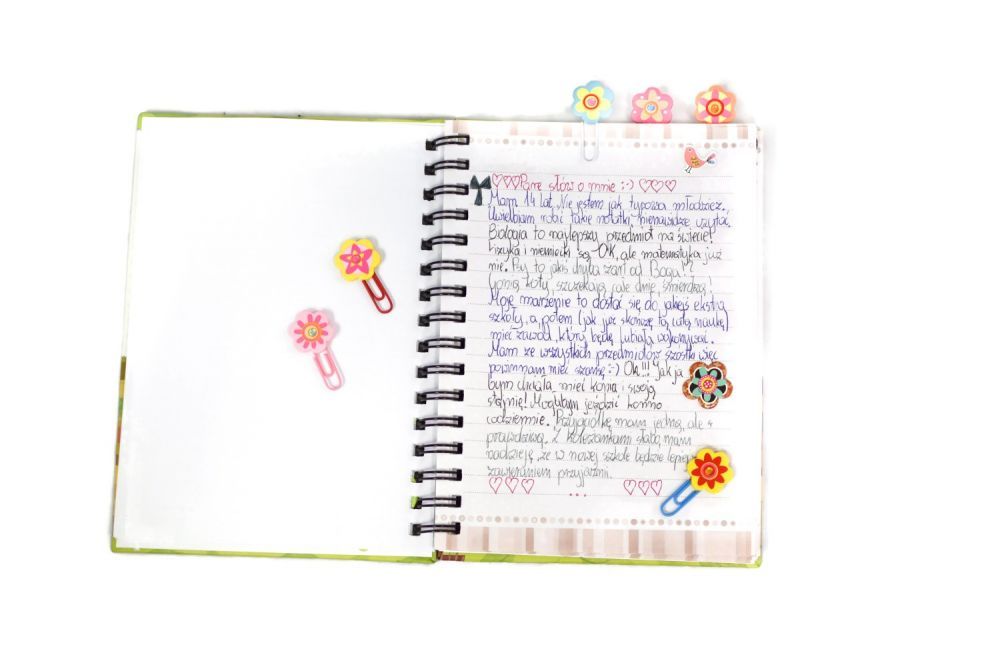 Parę słów o mnie :-)
Mam 14 lat. Nie jestem jak typowa młodzież.
Uwielbiam robić takie notatki, nienawidzę czytać.
Biologia to najlepszy przedmiot na świecie!
Fizyka i niemiecki są OK, ale matematyka już
nie. Psy to jakiś chyba żart od Boga!
Gonią koty, szczekają całe dnie, śmierdzą!
Moje marzenie to dostać się do jakiejś ekstra
szkoły, a potem (jak już skończę tą całą naukę)
mieć zawód, który będę lubiała wykonywać.
Mam ze wszystkich przedmiotów szóstki więc
powinnam mieć szansę :-) Ok!!! Jak ja
bym chciała mieć konia i swoją
stajnię! Mogłabym jeździć konno
codziennie. Przyjaciółkę mam jedną, ale
prawdziwą. Z koleżankami słabo, mam
nadzieję, że w nowej szkole będzie lepiej z
zawieraniem przyjaźni.
...